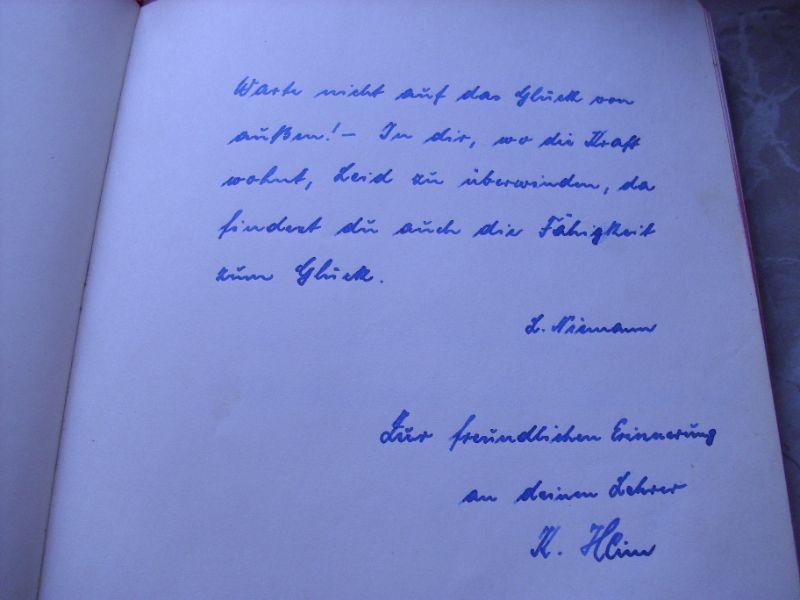 Warte nicht auf das Glück von
außen! – In dir, wo die Kraft
wohnt, Leid zu überwinden, da
findest du auch die Fähigkeit
zum Glück.
L. Niemann
Zur freundlichen Erinnerung
an deinen Lehrer
K.